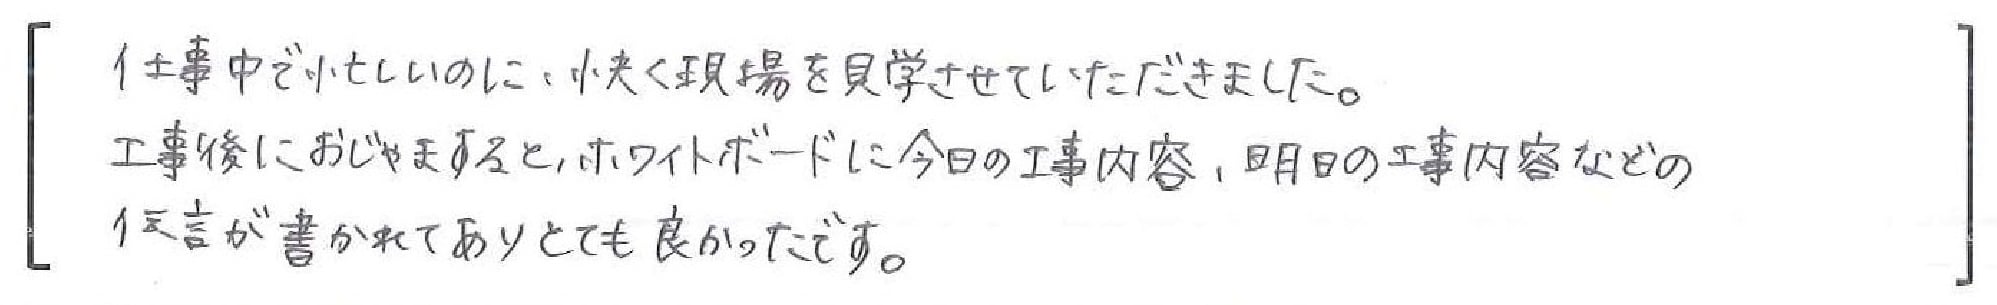 仕事中で忙しいのに、快く現場を見学させていただきました。
工事後におじゃますると、ホワイトボードに今日の工事内容、明日の工事内容などの
伝言が書かれてありとても良かったです。